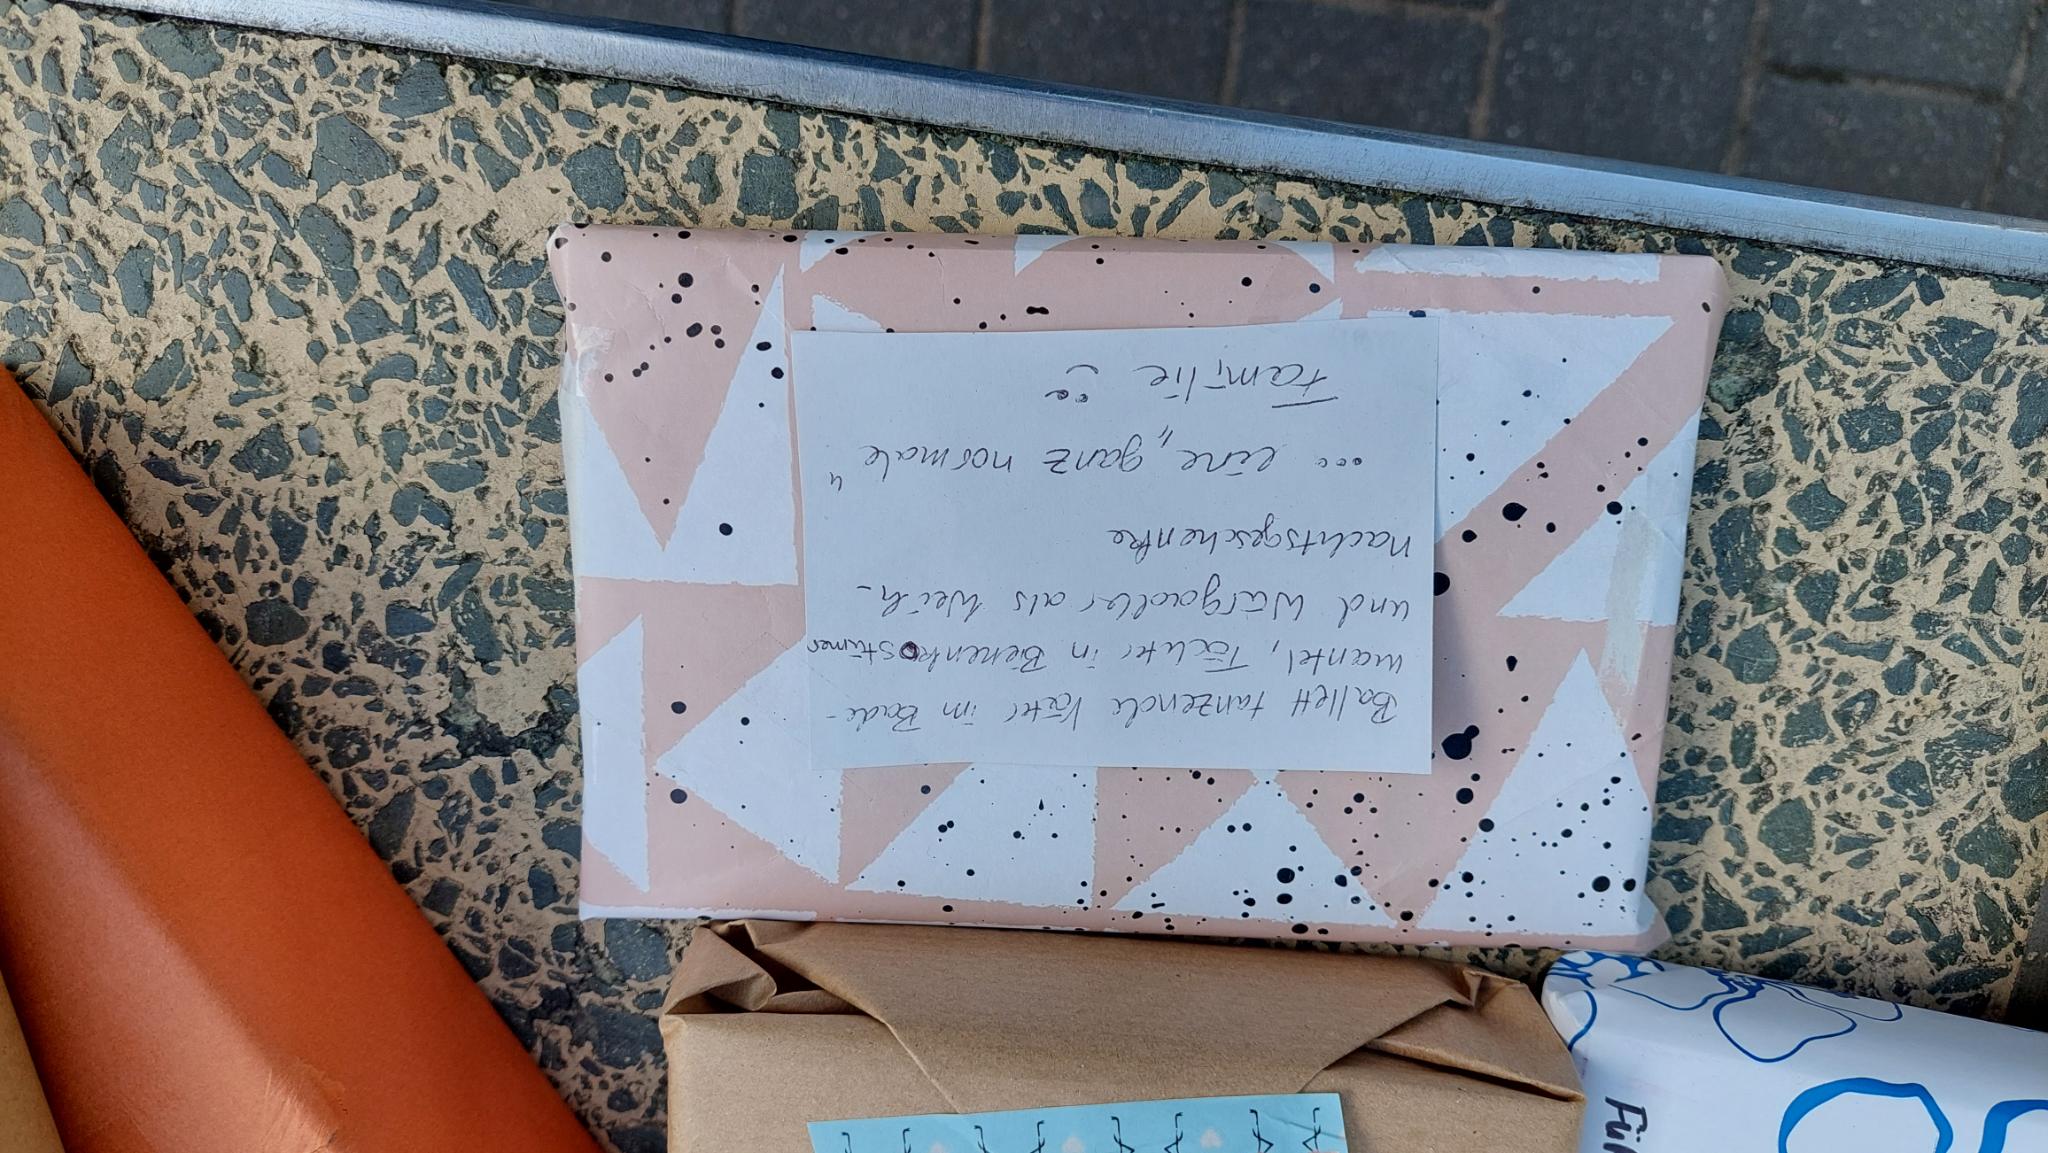 Ballett tanzende Väter im Bade-
mantel, Töchter in Bienenkostümen
und Würgadler als Weih-
nachtsgeschenke
... eine „ganz normale"
Familie
Für